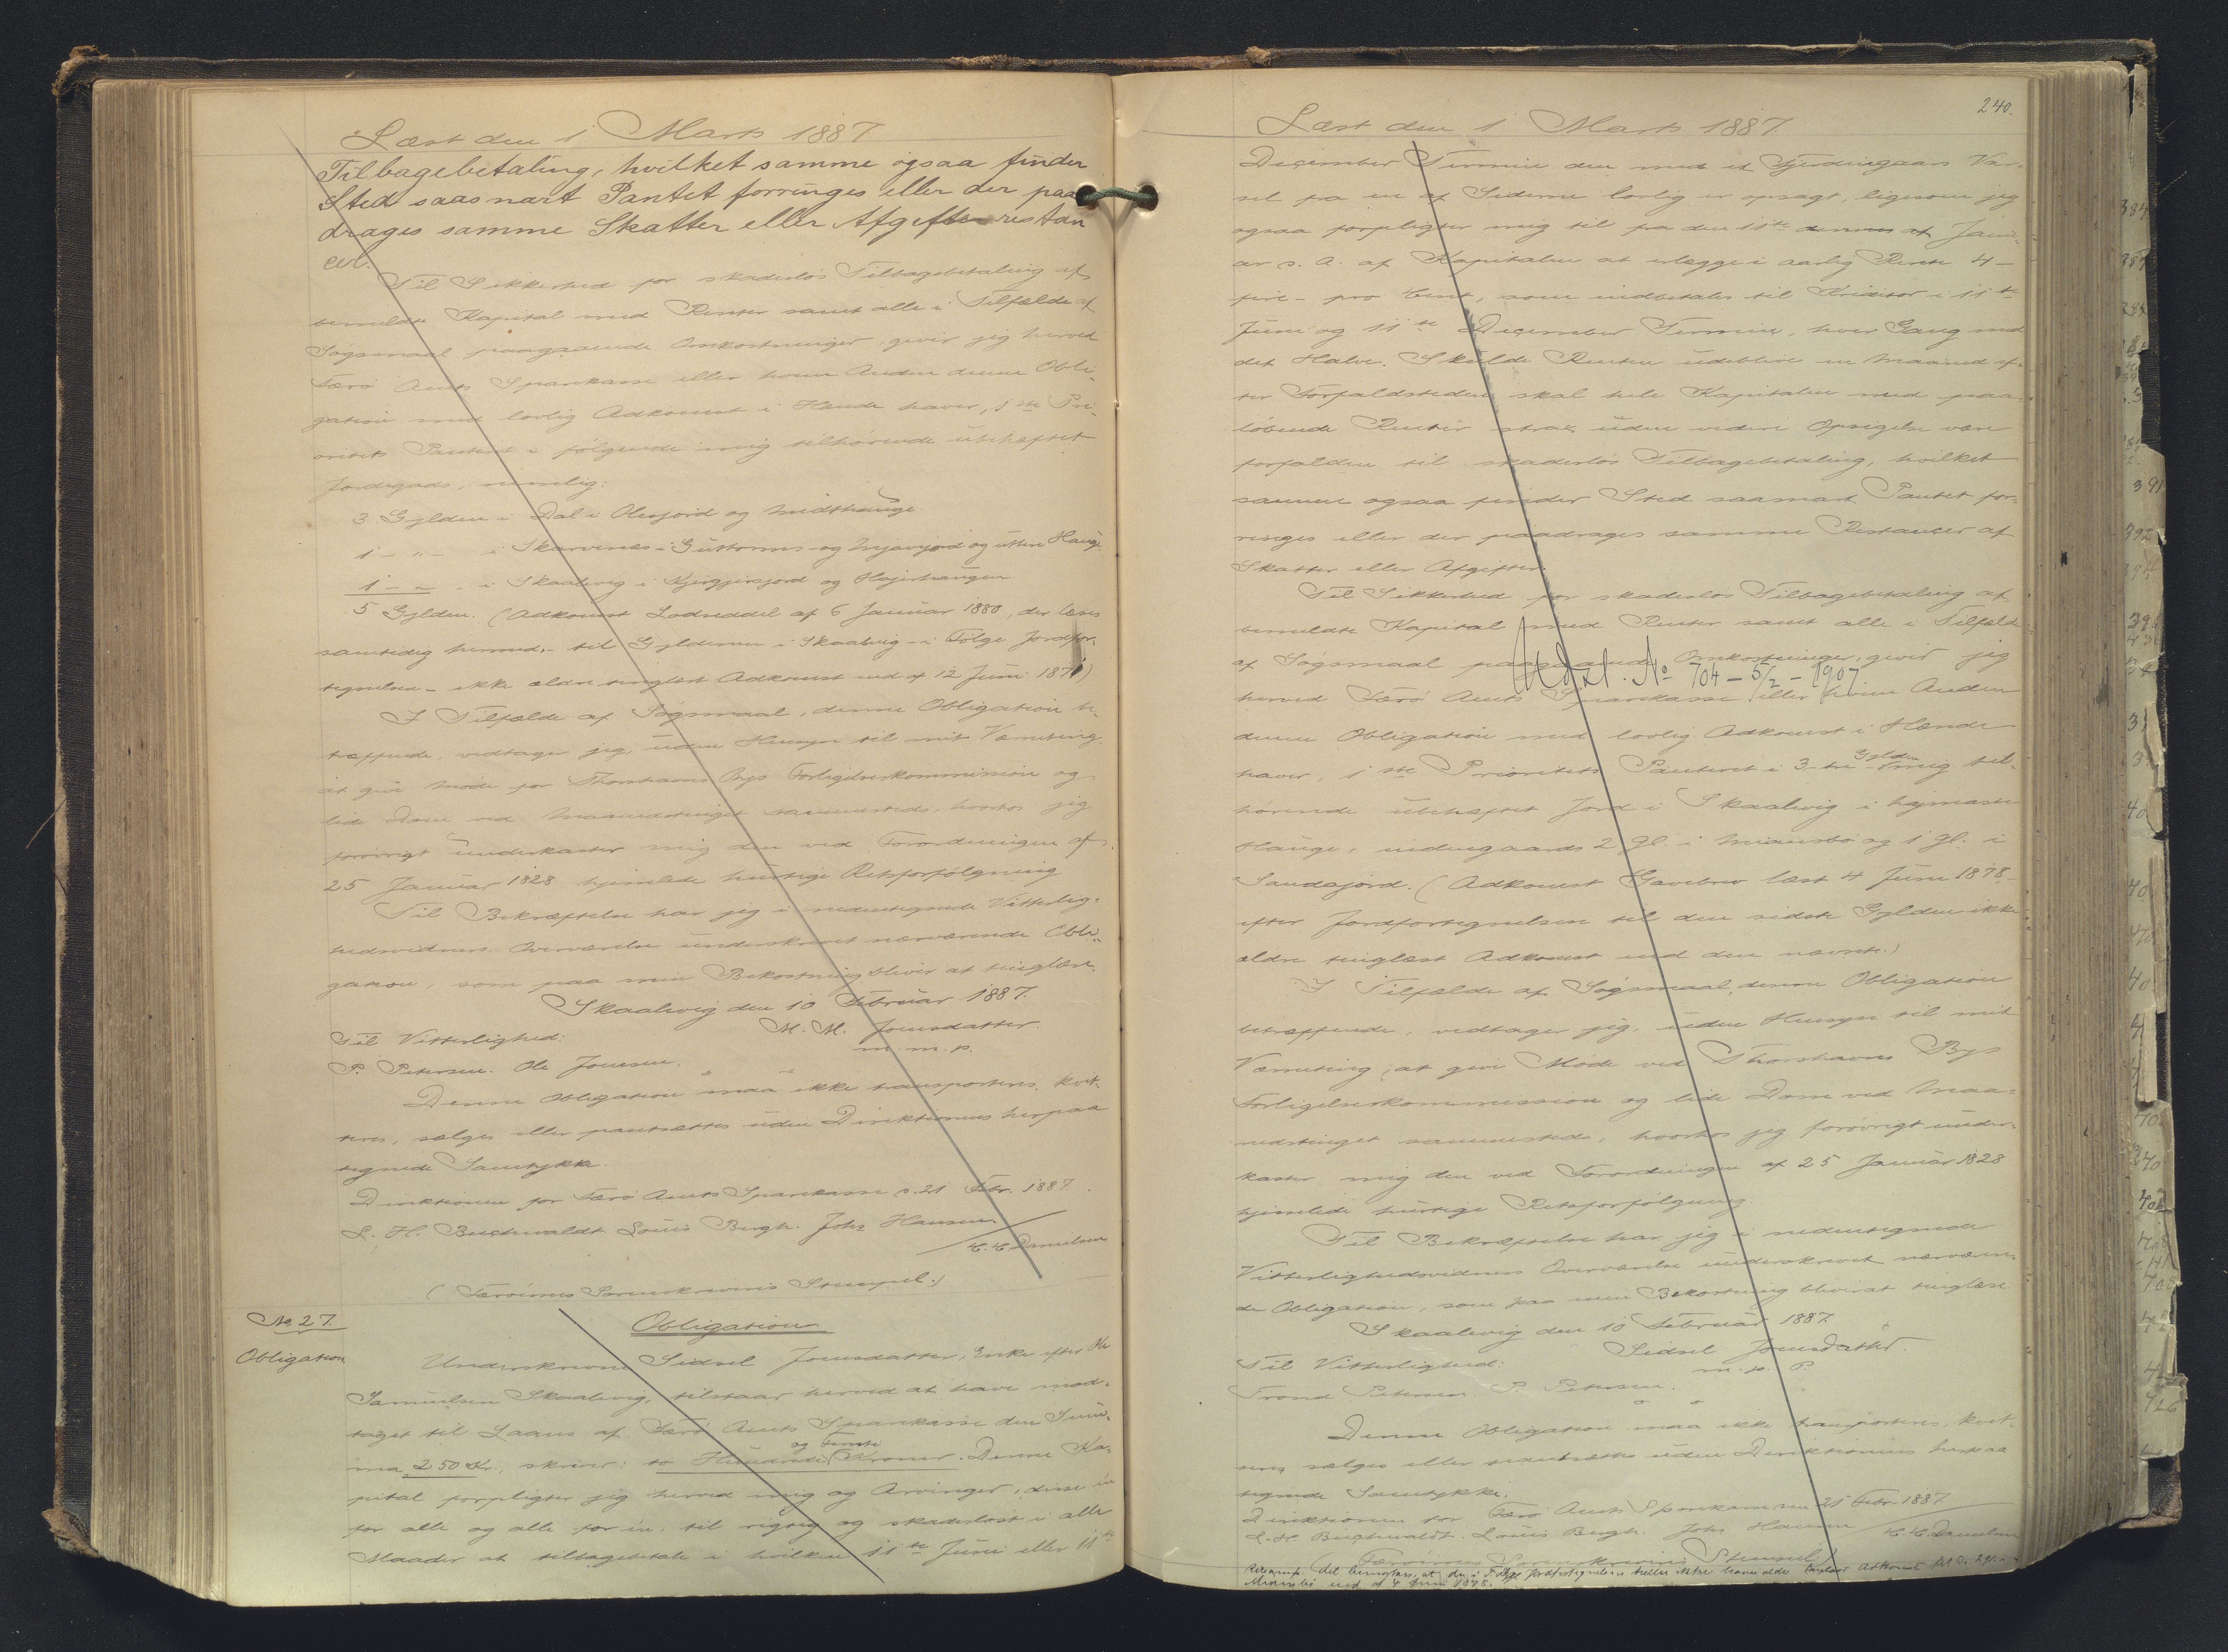 Læst den 1 Marts 1887
Tilbagebetaling, hvilket samme ogsaa finder
Sted saasnart Pantet forringes eller der paa
drages samme Skatter eller Afgifter restan
cer.
Til Sikkerhed for skadesløs Tilbagebetaling af
bemeldte Kapital med Renter samt alle i Tilfælde af
Søgsmaal paagaaende Omkostninger, giver jeg herved
Færø Amts Sparekasse eller hvem Anden denne Obli-
gation med lovlig Adkomst i Hænde haver, 1ste Pri-
oritets Panteret i følgende mig tilhørende ubehæftet
Jordegods, nemlig:
3 Gylden i Dal i Olesjord og Midthauge
1 - " - i Skarvenes i Guttorms- og og uttere Hauge
1 - " - i Skaalevig i og Højerhaugen
5 Gylden. (Adkomst Lodseddel af 6 Januar 1880, der læses
samtidig hermed, - til Gyldenen i Skaalevig - i Følge Jordfor-
tegnelsen - ikke ældre tinglæst Adkomst end af 12 Juni 1871)
I Tilfælde af Søgsmaal, denne Obligation be-
træffende, vedtager jeg, uden Hensyn til mit Værneting,
at give Møde for Thorshavns Bys Forligelseskommission og
lide Dom ved Maanedstinget sammesteds, hvorhos jeg
forøvrigt underkaster mig den ved Forordningen af
25 Januar 1828 hjemlede hurtige Retsforfølgning.
Til Bekræftelse har jeg i nedentegnede Vitterlig-
hedsvidners Overværelse underskrevet nærværende Obli-
gation, som paa min Bekostning bliver at tinglæse.
Skaalevig den 10 Februar 1887.
M. M. Joensdatter.
Til Vitterlighed:
m. m. p.
P. Petersen. Ole Joensen.
Denne Obligation maa ikke transporteres, kvit-
teres, sælges eller pantsættes uden Direktionens herpaa
tegnede Samtykke.
Direktionen for Færø Amts Sparekasse d. 21 Febr. 1887.
L. H. Buchwaldt Louis Bergh. Johs Hansen
/ C. C. Danielsen
(Færøernes Sorenskriveris Stempel.)
No 27.
Obligation
Obligation
Underskrevne Sidsel Joensdatter, Enke efter
Samuelsen Skaalevig, tilstaar herved at have mod-
taget til Laans af Færø Amts Sparekasse den Sum-
ma 250 Kr., skriver: to Hundrede og Femti Kroner. Denne Ka-
pital forpligter jeg herved mig og Arvinger, disse én
for alle og alle for én, til rigtig og skadesløst i alle
Maader at tilbagebetale i hvilken 11te Juni eller 11te
240.
Læst den 1 Marts 1887
December Termin den med et Fjerdingaars Var-
sel fra en af Siderne lovlig er opsagt, ligesom jeg
ogsaa forpligter mig til fra den 11te Janu-
ar d. A. af Kapitalen at erlægge i aarlig Rente 4 -
fire - pro Cent, som indbetales til Kreditor i 11te
Juni og 11te December Termin, hver Gang med
det Halve. Skulde Renten udeblive en Maaned ef-
ter Forfaldstiden, skal hele Kapitalen med paa-
løbende Renter strax uden videre Opsigelse være
forfalden til skadesløs Tilbagebetaling, hvilket
samme ogsaa finder Sted saasnart Pantet for-
ringes eller der paadrages samme Restancer af
Skatter eller Afgifter.
Til Sikkerhed for skadesløs Tilbagebetaling af
bemeldte Kapital med Renter samt alle i Tilfælde
af Søgsmaal paagaaende Omkostninger, giver jeg
Udsl. No 704 - 5/2 - 1907
herved Færø Amts Sparekasse eller hvem Anden
denne Obligation med lovlig Adkomst i Hænde
haver, 1ste Prioritets Panteret i 3 - tre - Gylden mig til-
hørende ubehæftet Jord i Skaalevig i højmaste
Hauge, nidengaards 2 gl. i Mianesbø og 1 gl. i
Sandajord. (Adkomst Gavebrev læst 4 Juni 1878 -
efter Jordfortegnelsen til den sidste Gylden ikke
ældre tinglæst Adkomst end den nævnte.)
I Tilfælde af Søgsmaal, denne Obligation
betræffende, vedtager jeg, uden Hensyn til mit
Værneting, at give Møde ved Thorshavns Bys
Forligelseskommission og lide Dom ved Maa-
nedstinget sammesteds, hvorhos jeg forøvrigt under-
kaster mig den ved Forordningen af 25 Januar 1828
hjemlede hurtige Retsforfølgning.
Til Bekræftelse har jeg i nedentegnede
Vitterlighedsvidners Overværelse underskrevet nærværen-
de Obligation, som paa min Bekostning bliver at tinglæse.
Skaalevig den 10 Februar 1887.
Sidsel Joensdatter.
Til Vitterlighed:
m. p. P.
Trond Petersen. P. Petersen.
Denne Obligation maa ikke transporteres, kvit-
teres, sælges eller pantsættes uden Direktionens herpaa
tegnede Samtykke.
Direktionen for Færø Amts Sparekasse den 21 Febr. 1887.
L. H. Buchwaldt. Louis Bergh. Johs Hansen / C. C. Danielsen
(Færøernes Sorenskriveris Stempel)
det bemærkes, at der i Følge Jordfortegnelsen heller ikke haves ældre tinglæst Adkomst
Mianesbø end af 4 Juni 1878.